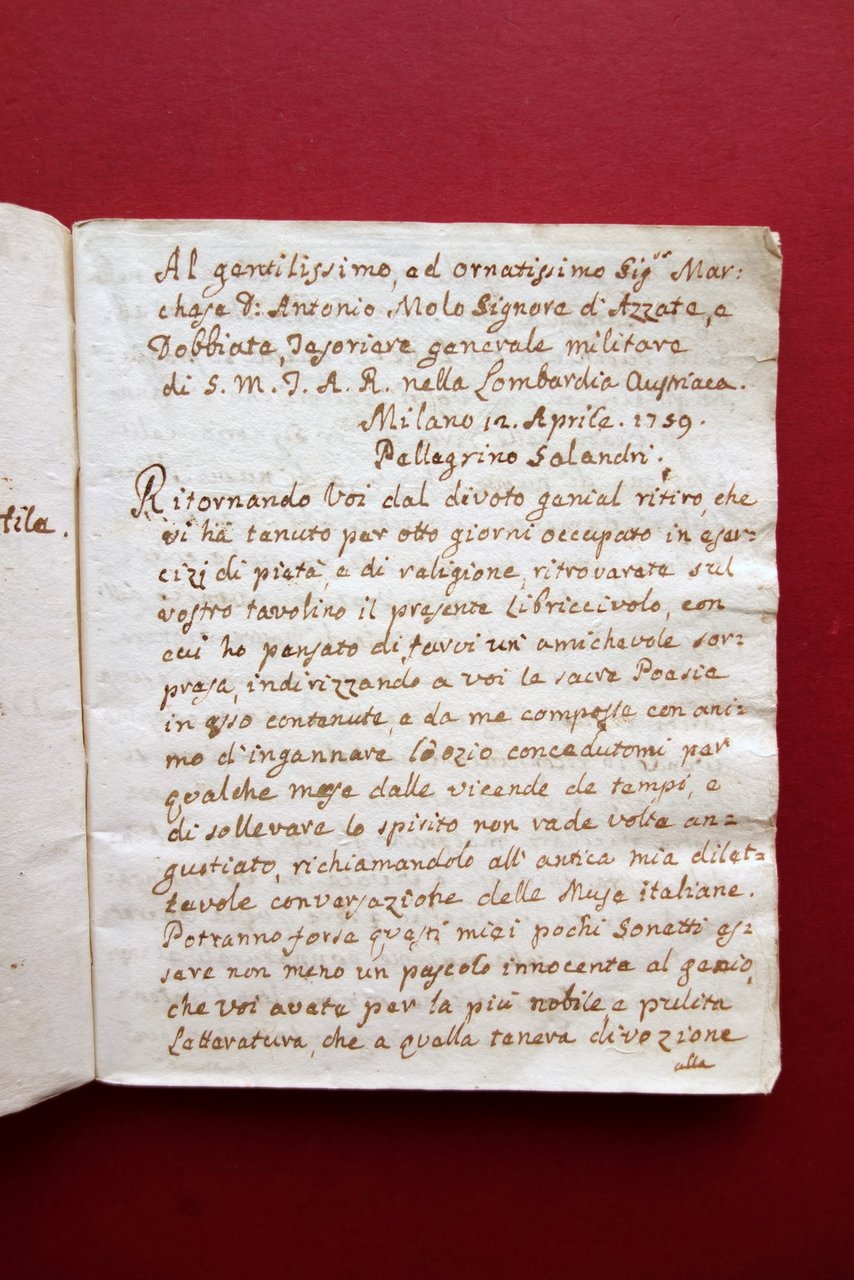 tila.
Al gentilissimo, ed ornatissimo Sig.r Mar:
chese D: Antonio Molo Signore d'Azzate, e
Dobbiate, Tesoriere generale militare
di S. M. I. A. R. nella Lombardia Austriaca.
Milano 12. Aprile. 1759.
Pellegrino Salandri.
Ritornando Voi dal divoto genial ritiro, che
vi ha tenuto per otto giorni occupato in eser=
cizj di pietà, e di religione, ritroverete sul
vostro tavolino il presente Libriccivolo, con
cui ho pensato di farvi un' amichevole sor=
presa, indirizzando a voi le sacre Poesie
in esso contenute, e da me composte con ani=
mo d'ingannare l'ozio concedutomi per
qualche mese dalle vicende de tempi, e
di sollevare lo spirito non rade volte an=
gustiato, richiamandolo all' antica mia dilet=
tevole conversazione delle Muse italiane.
Potranno forse questi miei pochi Sonetti es=
sere non meno un pascolo innocente al genio,
che voi avete per la più nobile, e pulita
Letteratura, che a quella tenera divozione
alla